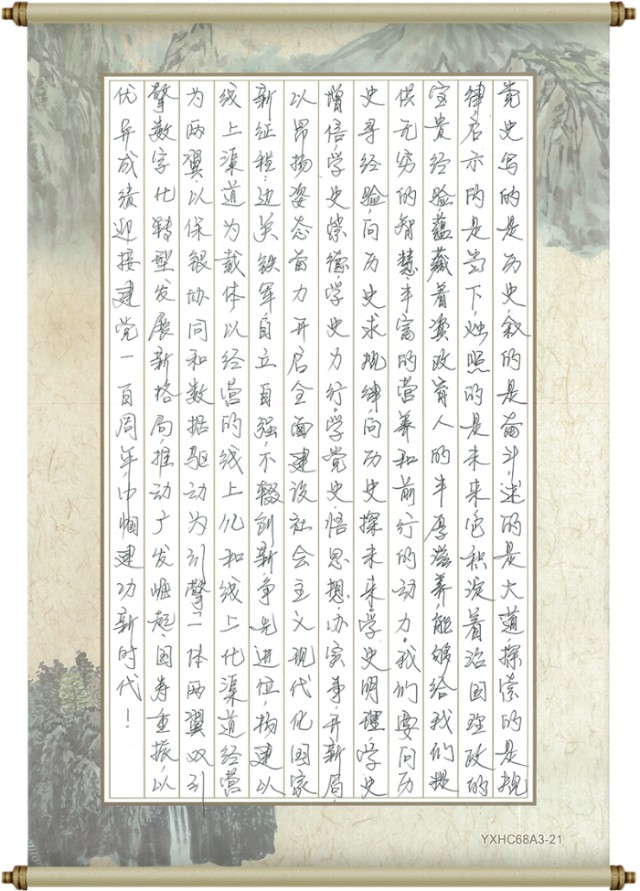 党史写的是历史,叙的是奋斗,述的是大道,探索的是规
律,启示的是当下,烛照的是未来,它积淀着治国理政的
宝贵经验,蕴藏着资政育人的丰厚滋养,能够给我们提
供无穷的智慧,丰富的营养和前行的动力。我们要向历
史寻经验,向历史求规律,向历史探未来,学史明理,学史
增信,学史崇德,学史力行,学党史,悟思想,办实事,开新局,
以昂扬姿态奋力开启全面建设社会主义现代化国家
新征程,边关铁军,自立自强,不辍创新,争先进位,构建以
线上渠道为载体以经营的线上化和线上化渠道经营
为两翼,以保银协同和数据驱动为引擎,一体两翼,双引
擎数字化转型发展新格局,推动广发崛起,国寿重振,以
优异成绩迎接建党一百周年,巾帼建功新时代!
YXHC68A3-21